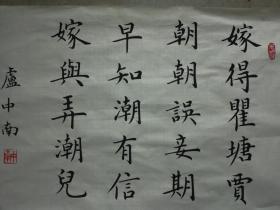 嫁得瞿塘賈
朝朝誤妾期
早知潮有信
嫁與弄潮兒
盧中南